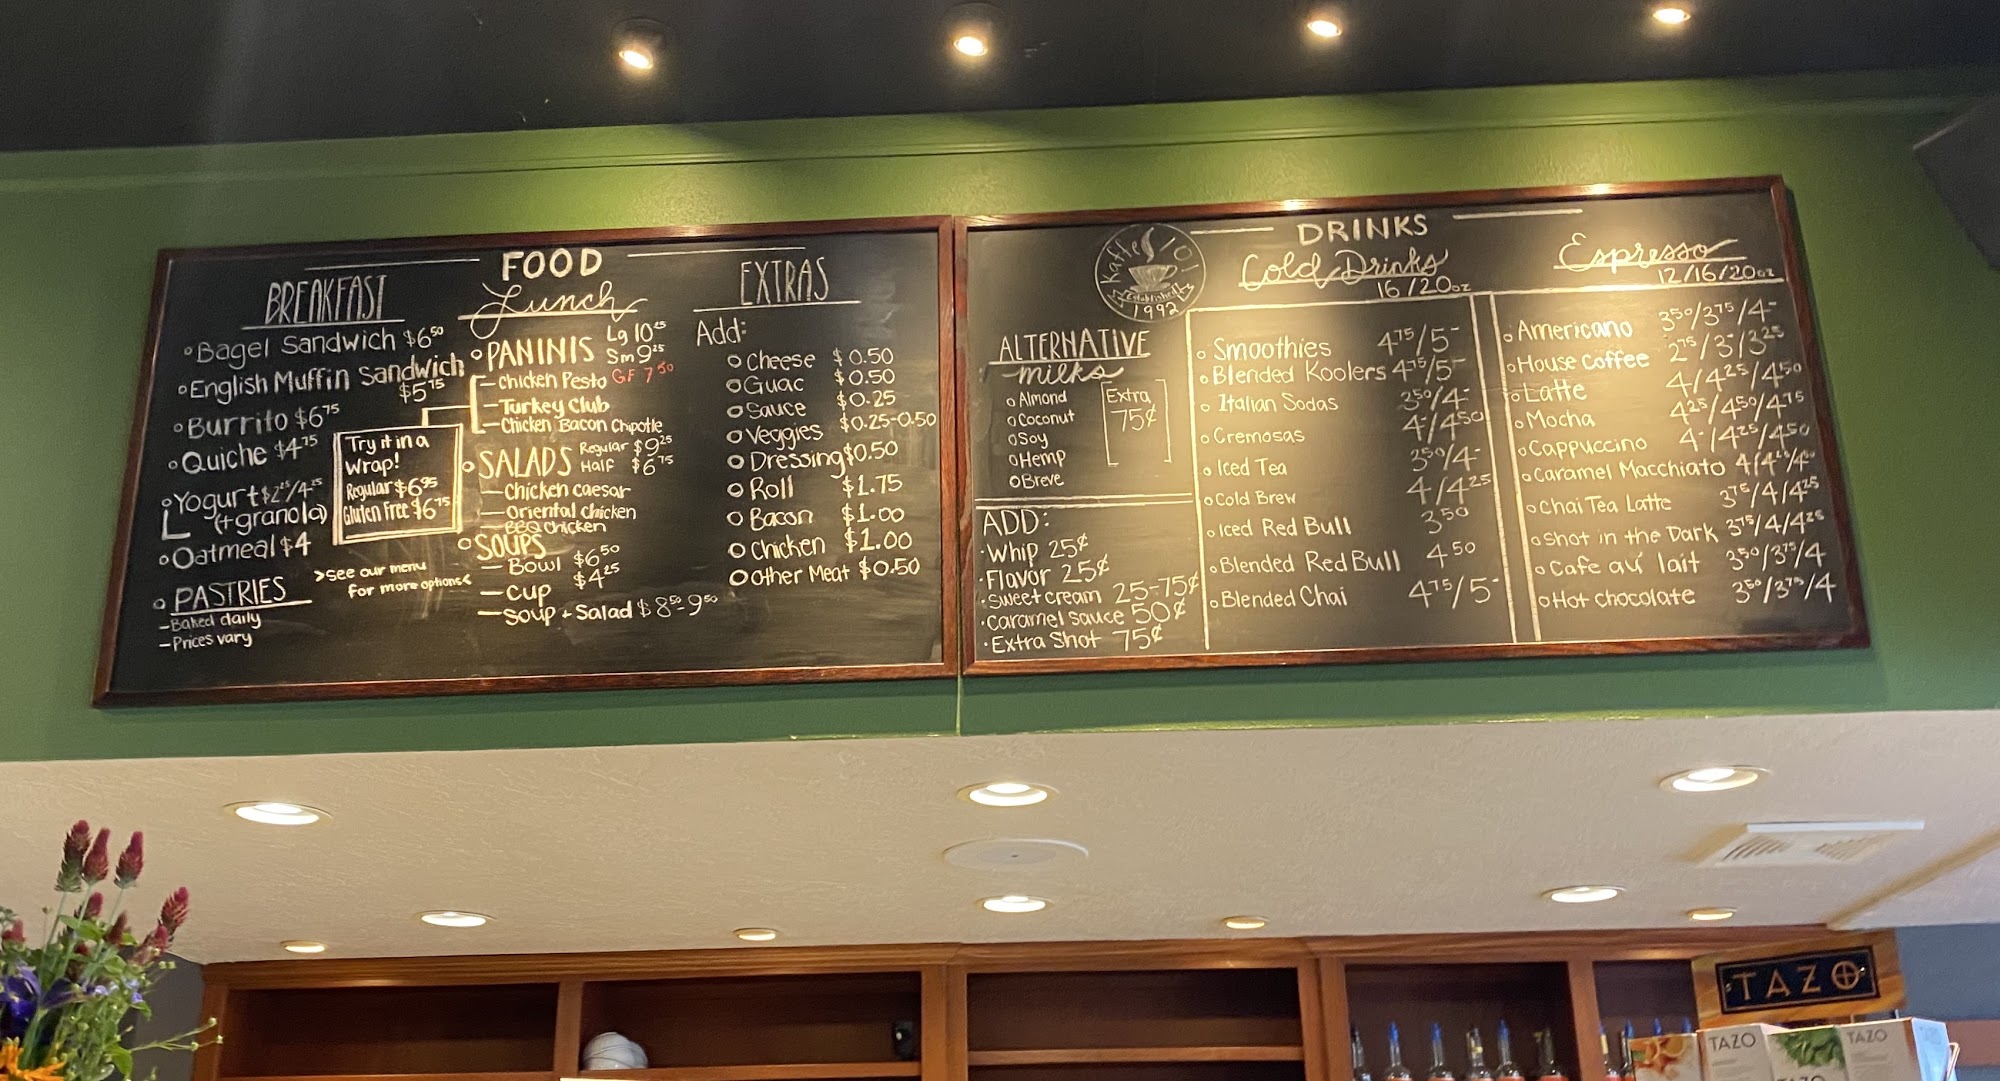 FOOD
BREAKFAST
Bagel Sandwich $6⁵⁰
English Muffin Sandwich
$5⁷⁵
Burrito $6⁷⁵
Quiche $4⁷⁵
Yogurt $2²⁵/4²⁵
(+granola)
Oatmeal $4
PASTRIES
-Baked daily
-Prices vary
Try it in a
Wrap!
Regular $6⁹⁵
Gluten Free $6⁷⁵
>see our menu
for more options<
Lunch
PANINIS Lg 10²⁵
Sm 9²⁵
-Chicken Pesto GF 7⁵⁰
-Turkey Club
-Chicken Bacon Chipotle
SALADS Regular $9²⁵
Half $6⁷⁵
-Chicken caesar
-Oriental Chicken
-BBQ Chicken
SOUPS
-Bowl $6⁵⁰
-cup $4²⁵
-Soup + Salad $8⁵⁰-9⁵⁰
EXTRAS
Add:
Cheese $0.50
Guac $0.50
Sauce $0.25
Veggies $0.25-0.50
Dressing $0.50
Roll $1.75
Bacon $1.00
Chicken $1.00
Other Meat $0.50
DRINKS
Kaffe 101
Established
1992
ALTERNATIVE
milks
Almond
Coconut
Soy
Hemp
Breve
Extra
75¢
ADD:
·Whip 25¢
·Flavor 25¢
·Sweet cream 25-75¢
·Caramel sauce 50¢
·Extra Shot 75¢
Cold Drinks
16/20oz
Smoothies 4⁷⁵/5-
Blended Koolers 4⁷⁵/5-
Italian Sodas 3⁵⁰/4-
Cremosas 4-/4⁵⁰
Iced Tea 3⁵⁰/4-
Cold Brew 4/4²⁵
Iced Red Bull 3⁵⁰
Blended Red Bull 4⁵⁰
Blended Chai 4⁷⁵/5-
Espresso
12/16/20oz
Americano 3⁵⁰/3⁷⁵/4-
House Coffee 2⁷⁵/3-/3²⁵
Latte 4/4²⁵/4⁵⁰
Mocha 4²⁵/4⁵⁰/4⁷⁵
Cappuccino 4-/4²⁵/4⁵⁰
Caramel Macchiato 4/4²⁵/4⁵⁰
Chai Tea Latte 3⁷⁵/4/4²⁵
Shot in the Dark 3⁷⁵/4/4²⁵
Cafe au lait 3⁵⁰/3⁷⁵/4
Hot chocolate 3⁵⁰/3⁷⁵/4
TAZO
TAZO
TAZO
TAZO